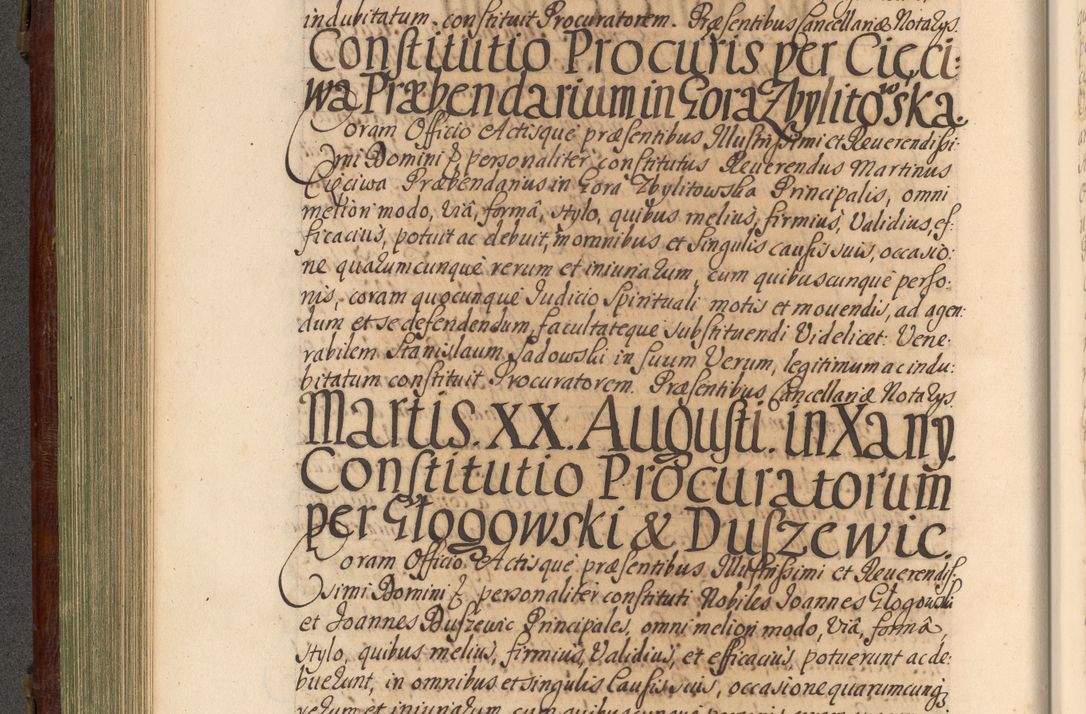 indubitatum constituit Procuratorem. Præsentibus Cancellariæ Notarys.
Constitutio Procuris per Cięci:
wa Præbendarium in Gora Zbylitowska.
Coram Officio Actisque præsentibus Illustrissimi et Reuerendissi:
mi Domini & personaliter constitutus Reuerendus Martinus
Cięciwa Præbendarius in Gora Zbylitowska Principalis, omni
meliori modo, viâ, formâ, stylo, quibus melius, firmius, Validius, ef:
ficacius, potuit ac debuit, in omnibus et singulis causis suis, occasio:
ne quarumcunque rerum et iniuriarum, cum quibuscunque perso:
nis, coram quocunque Judicio Spirituali motis et mouendis, ad agen:
dum et se defendendum, facultateque substituendi Videlicet: Vene:
rabilem Stanislaum Sadowski in suum Verum, legitimum ac indu:
bitatum constituit Procuratorem. Præsentibus Cancellariæ Notarys.
Martis. XX. Augusti. in Xany.
Constitutio Procuratorum
per Głogowski & Duszewic.
Coram Officio Actisque præsentibus Illustrissimi et Reuerendis:
simi Domini & personaliter constituti Nobiles Joannes Głogowski
et Joannes Duszewic Principales, omni meliori modo, viâ, formâ,
stylo, quibus melius, firmius, Validius, et efficacius, potuerunt ac de:
buerunt, in omnibus et singulis Causis suis, occasione quarumcunq
rerum et iniuriarum, cum quibuscunque personis